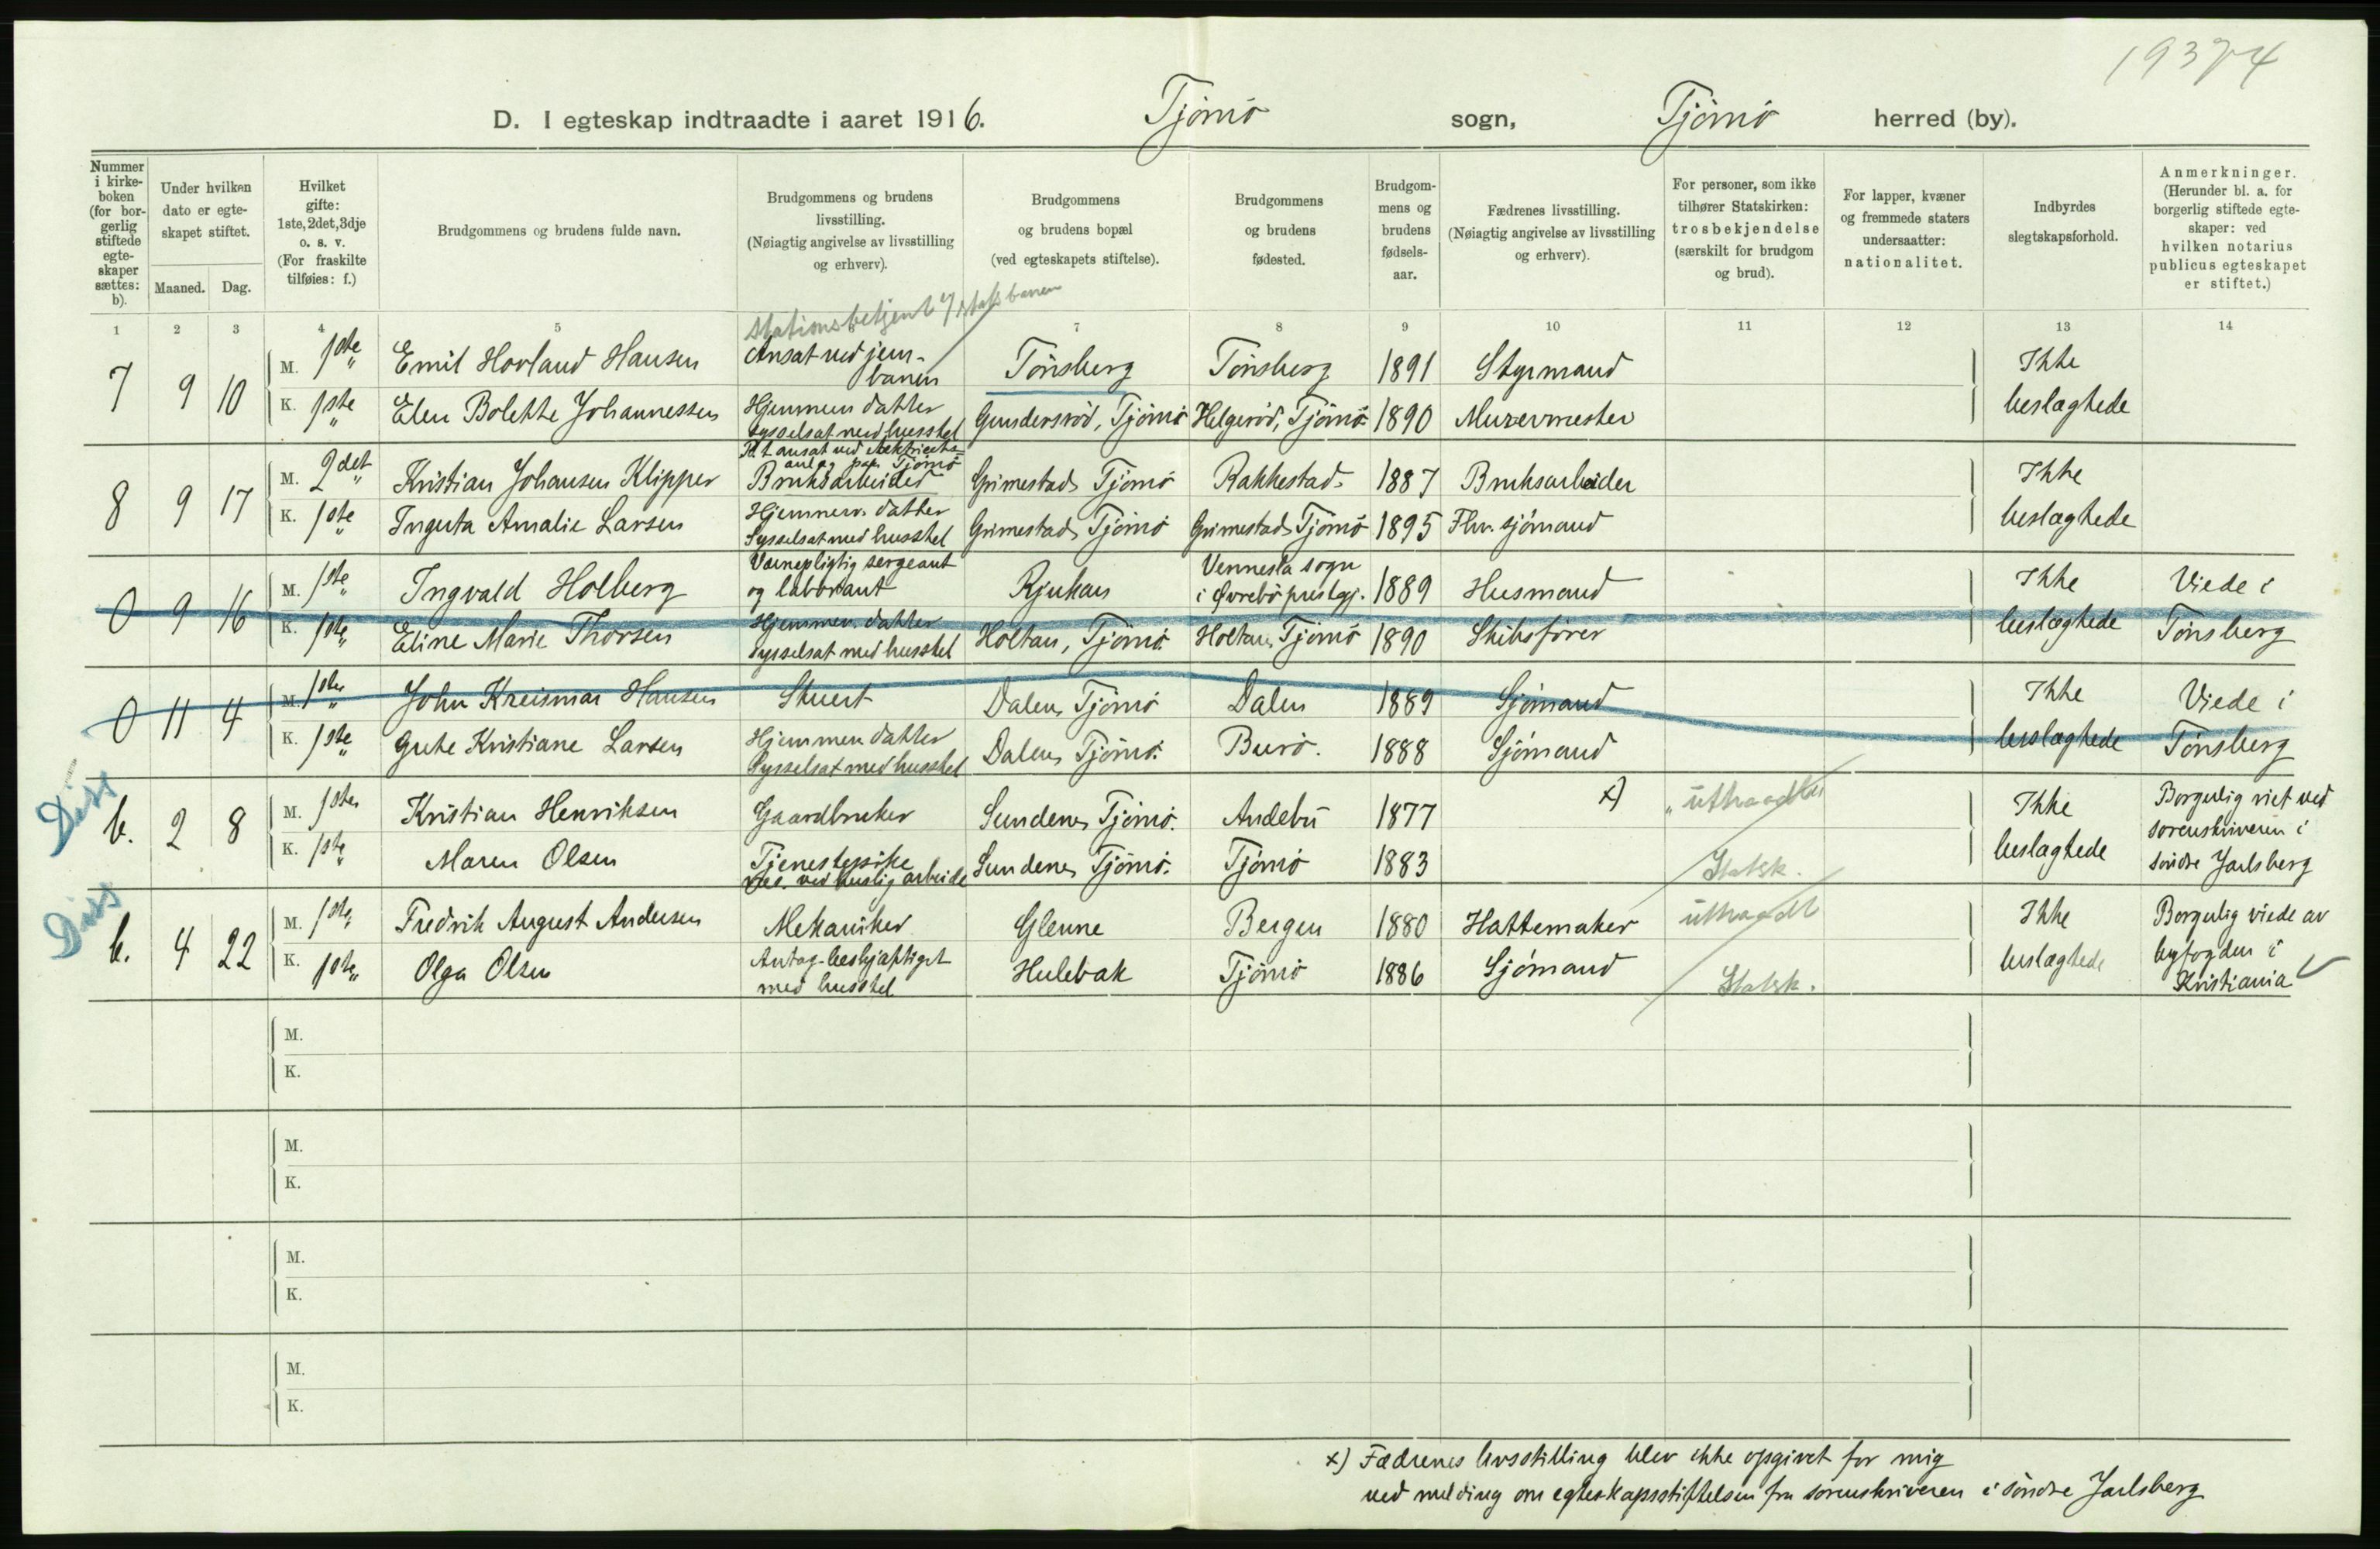 19374
D. I egteskap indtraadte i aaret 1916. Tjömö sogn, Tjömö herred (by).
Nummer i kirkeboken (for borgerlig stiftede egteskaper sættes: b).
Under hvilken dato er egteskapet stiftet.
Maaned. Dag.
Hvilket gifte: 1ste, 2det, 3dje o. s. v. (For fraskilte tilføies: f.)
Brudgommens og brudens fulde navn.
Brudgommens og brudens livsstilling. (Nøiagtig angivelse av livsstilling og erhverv).
Brudgommens og brudens bopæl (ved egteskapets stiftelse).
Brudgommens og brudens fødested.
Brudgommens og brudens fødselsaar.
Fædrenes livsstilling. (Nøiagtig angivelse av livsstilling og erhverv).
For personer, som ikke tilhører Statskirken: trosbekjendelse (særskilt for brudgom og brud).
For lapper, kvæner og fremmede staters undersaatter: nationalitet.
Indbyrdes slegtskapsforhold.
Anmerkninger. (Herunder bl. a. for borgerlig stiftede egteskaper: ved hvilken notarius publicus egteskapet er stiftet.)
1 2 3 4 5 7 8 9 10 11 12 13 14
Stationsbetjent v/ statsbanen
7 9 10 M. 1ste Emil Hovland Hansen Ansat ved jernbanen Tönsberg Tönsberg 1891 Styrmand Ikke
K. 1ste " Elen Bolette Johannessen Hjemmev. datter sysselsat med husstel Gundersröd, Tjömö Helgeröd, Tjömö 1890 Murermester beslægtede
8 9 17 M. 2det " Kristian Johansen Klipper P.t. ansat ved elektricitetsanlæg paa Tjömö Bruksarbeider Grimestad, Tjömö Rakkestad. 1887 Bruksarbeider Ikke
K. 1ste " Inguta Amalie Larsen Hjemmev. datter Sysselsat med husstel Grimestad, Tjömö Grimestad, Tjömö 1895 Fhv. sjömand beslægtede
0 9 16 M. 1ste " Ingvald Holberg Værnepligtig sergeant og laborant Rjukan Vennesla sogn i Øvrebö prestegj. 1889 Husmand Ikke Viede i
K. 1ste " Eline Marie Thorsen Hjemmev. datter sysselsat med husstel Holtan, Tjömö Holtan, Tjömö 1890 Skibsförer beslægtede Tönsberg
0 11 4 M. 1ste " John Kreismar Hansen Stuert Dalen, Tjömö Dalen 1889 Sjömand Ikke Viede i
K. 1ste " Gute Kristiane Larsen Hjemmev. datter Sysselsat med husstel Dalen, Tjömö. Burö. 1888 Sjömand beslægtede Tönsberg
Diss
b. 2 8 M. 1ste Kristian Henriksen Gaardbruker Sundene, Tjömö. Andebu 1877 x) " uttraadt Ikke Borgerlig viet ved sorenskriveren i
K. 1ste " Maren Olsen Tjenestepike ved huslig arbeide Sundene, Tjömö. Tjömö 1883 Statsk. beslægtede söndre Jarlsberg
Diss
b. 4 22 M. 1ste " Fredrik August Andersen Mekaniker Glenne Bergen 1880 Hattemaker uttraadt Ikke Borgerlig viede av
K. 1ste " Olga Olsen Antag. beskjæftiget med husstel Hulebak Tjömö 1886 Sjömand Statsk. beslægtede byfogden i Kristiania
M.
K.
M.
K.
M.
K.
M.
K.
x) Fædrenes livsstilling blev ikke opgivet for mig
ved melding om egteskapsstiftelsen fra sorenskriveren i söndre Jarlsberg